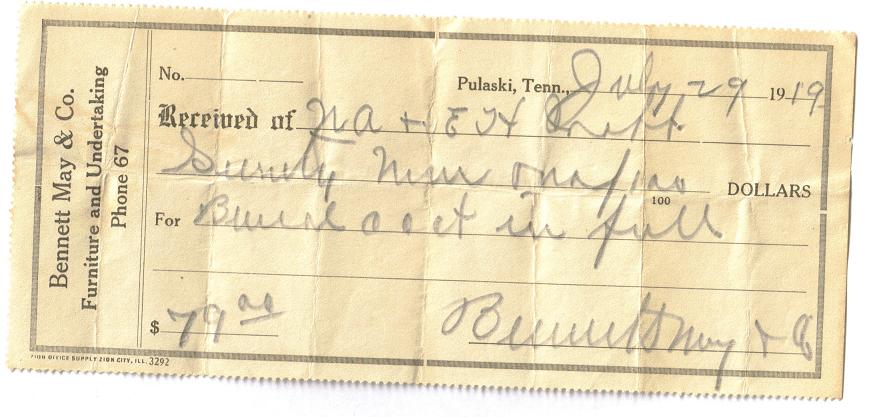 Bennett May & Co.
Furniture and Undertaking
Phone 67
No.
Pulaski, Tenn., July 29 1919
Received of W A + E H
Seventy Nine no/100 DOLLARS
100
For Burial acct in full
$ 79 00
Bennett May & Co
ZION OFFICE SUPPLY ZION CITY, ILL. 3292